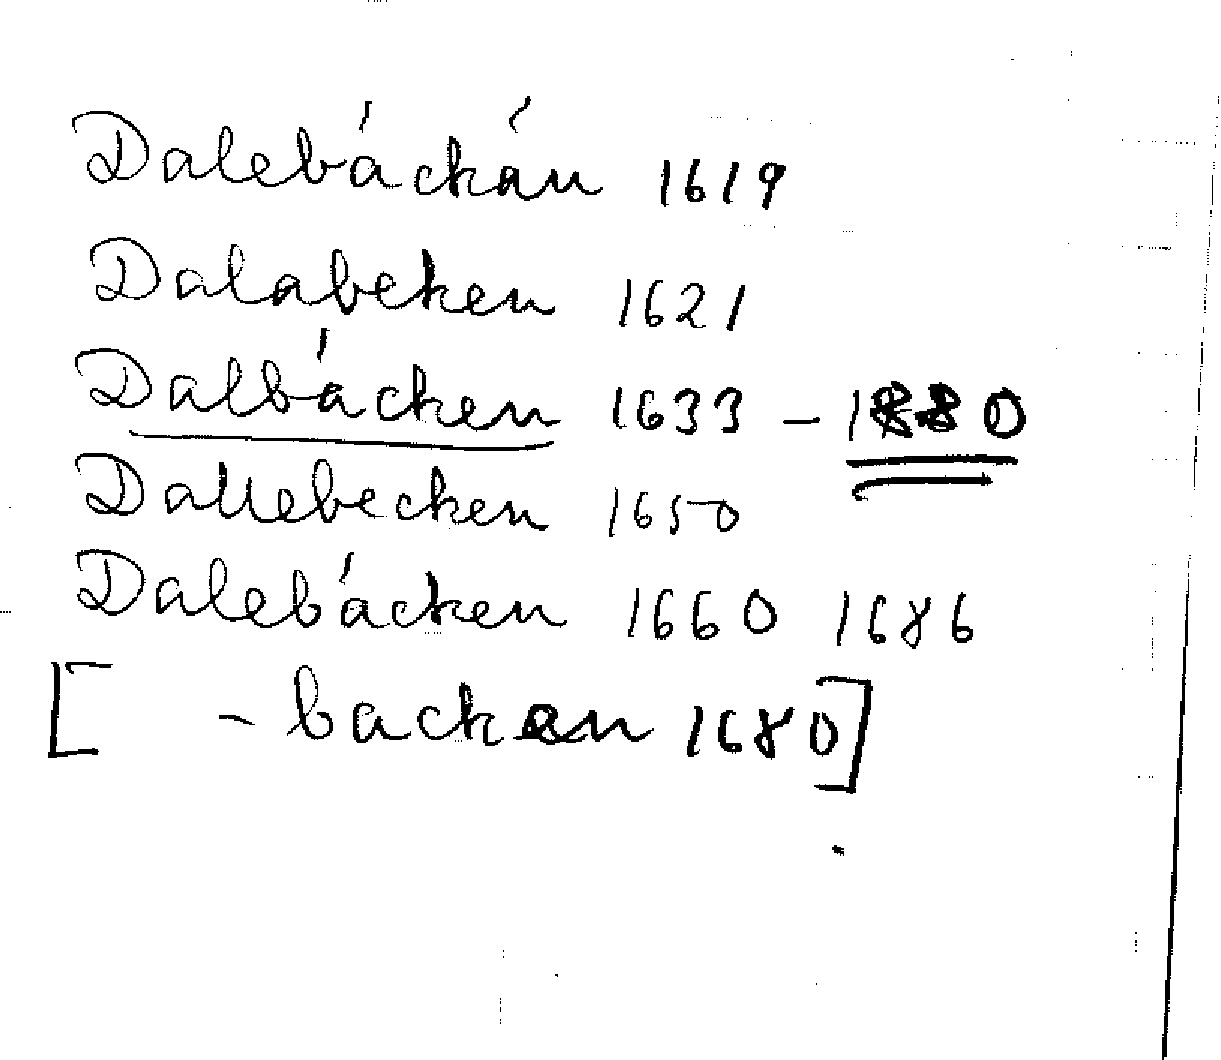 Dalebáckán 1619
Dalabeken 1621
Dalbácken 1633 - 1880
Dallebecken 1650
Dalebácken 1660 1686
[ - backan 1680]